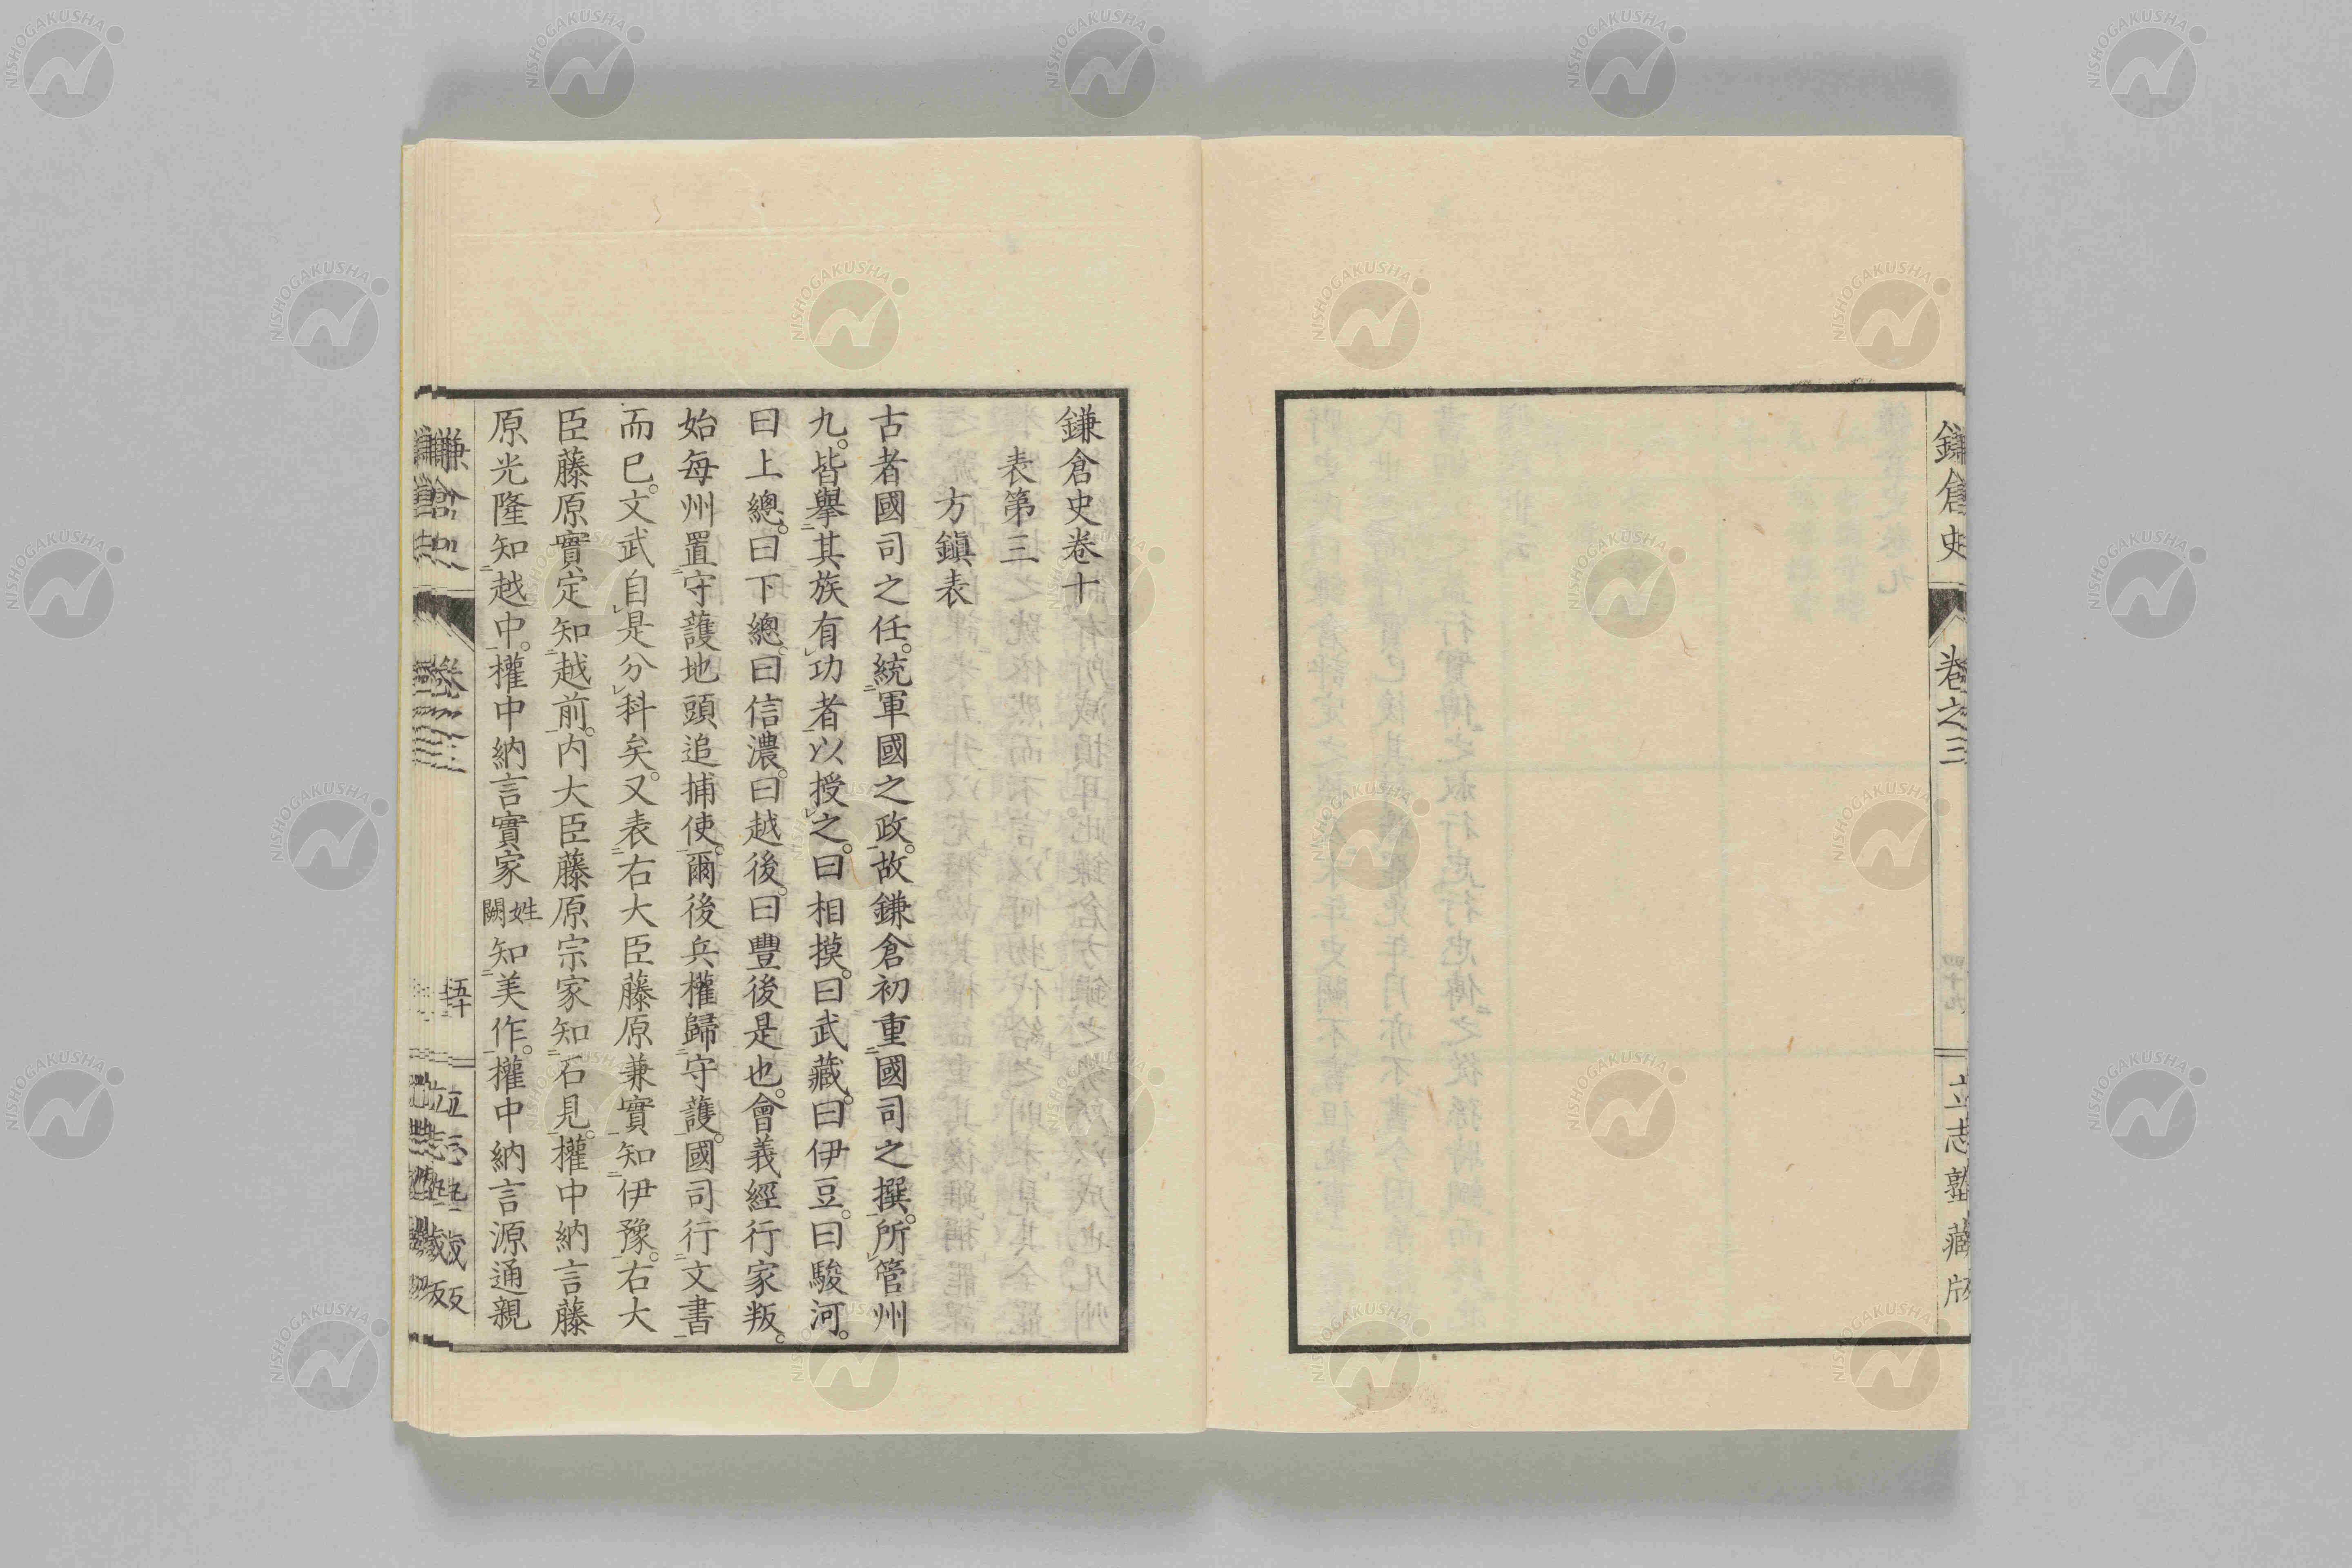 鎌倉史
卷之三
立志塾藏版
鎌倉史卷十
表第三
方鎭表
古者國司之任。統軍國之政。故鎌倉初重國司之撰。所管州
九。皆擧其族有功者以授之。曰相摸。曰武藏。曰伊豆。曰駿河。
曰上總。曰下總。曰信濃。曰越後。曰豐後是也。會義經行家叛。
始毎州置守護地頭追捕使。爾後兵權歸守護。國司行文書
而已。文武自是分科矣。又表右大臣藤原兼實知伊豫。右大
臣藤原實定知越前。内大臣藤原宗家知石見。權中納言藤
原光隆知越中。權中納言實家姓闕知美作。權中納言源通親
NISHOGAKUSHA